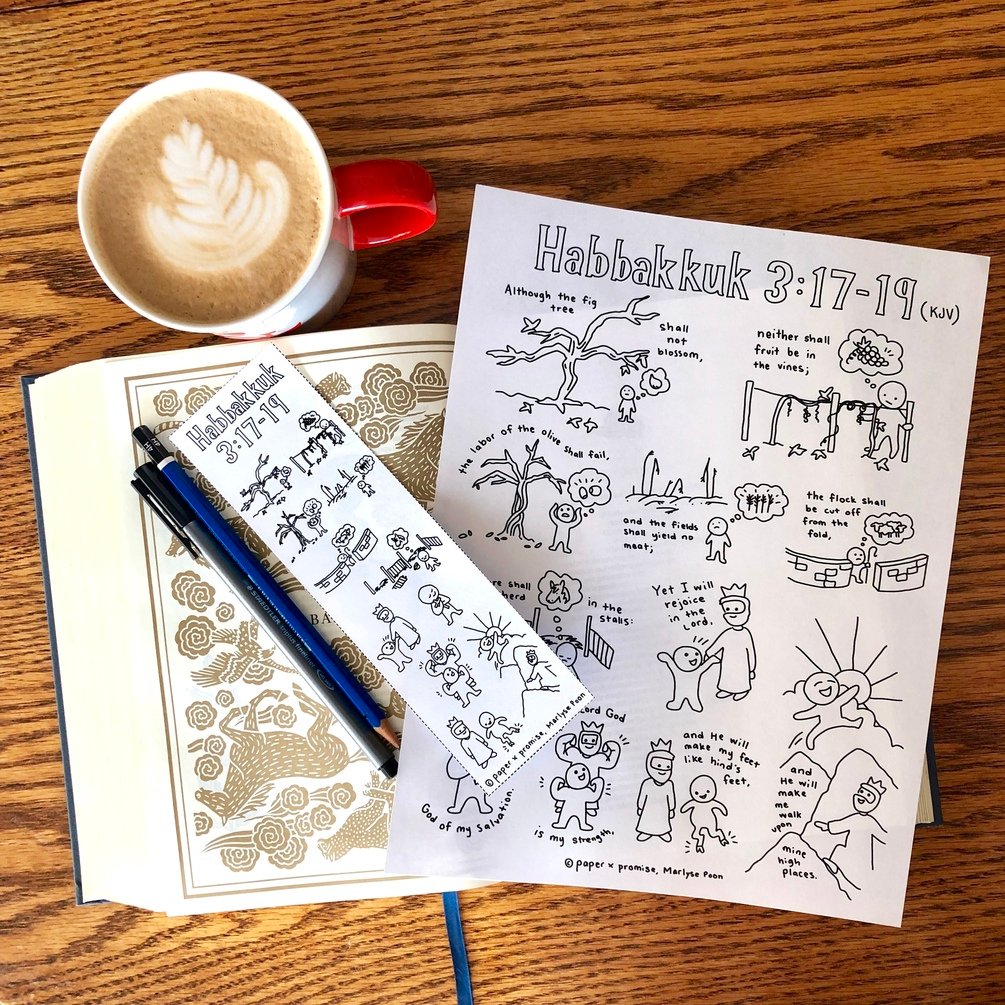 Habbakkuk 3:17-19 (KJV)
Although the fig
tree
shall
not
blossom,
neither shall
fruit be in
the vines;
the labor of the olive shall fail,
and the fields
shall yield no
meat;
the flock shall
be cut off
from the
fold,
shall
in the
stalls:
Yet I will
rejoice
in the
Lord.
God
God of my Salvation.
is my strength,
and He will
make my feet
like hind's
feet,
and
He will
make
me
walk
upon
mine
high
places.
© paper x promise, Marlyse Poon
Habbakkuk
3:17-19
© paper x promise, Marlyse Poon
HB
STAEDTLER